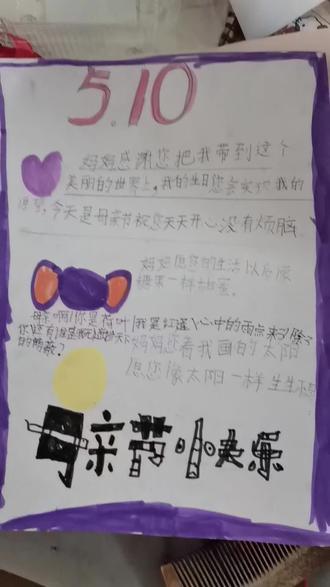 5.10
妈妈感谢您把我带到这个
美丽的世界上。我的生日您会实现我的
愿望,今天是母亲节祝您天天开心没有烦脑
妈妈愿您的生活以后像
糖果一样甜蜜。
母亲啊!你是荷叶,我是红莲,心中的雨点来了,除了
你,还有谁是我无遮拦天下
的荫蔽?
妈妈您看我画的太阳
愿您像太阳一样生生不
母亲节小快乐